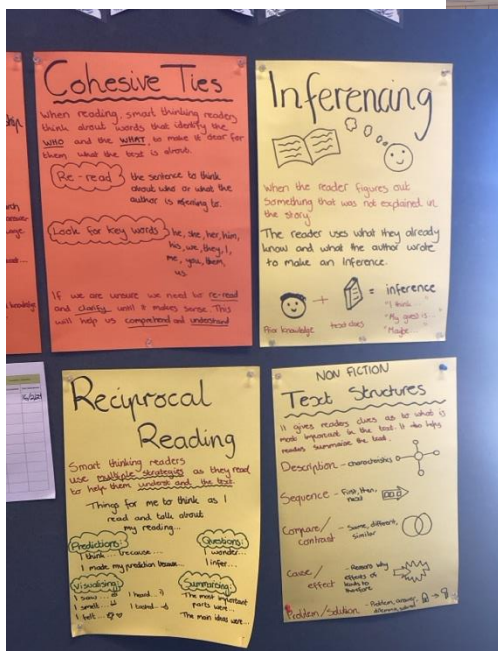 Cohesive Ties
When reading, smart thinking readers
think about words that identify the
WHO and the WHAT, to make it clear for
them what the text is about.
Re-read
the sentence to think
about who or what the
author is referring to.
Look for key words
he, she, her, him,
his, we, they, I,
me, you, them,
us
If we are unsure we need to re-read
and clarify until it makes sense. This
will help us comprehend and understand
Inferencing
When the reader figures out
something that was not explained in
the story
The reader uses what they already
know and what the author wrote
to make an inference.
+ = inference
"I think
"My guess is..."
"Maybe
Prior knowledge
text clues
Reciprocal
Reading
Smart thinking readers
use multiple strategies as they read
to help them understand the text.
Things for me to think as I
read and talk about
my reading...
Predictions:
I think... because...
I made my prediction because...
Questions:
I wonder...
I infer...
Visualising:
I saw...
I heard...
I smelt...
I tasted...
I felt...
Summarising:
The most important
parts were...
The main ideas were...
NON FICTION
Text Structures
It gives readers clues as to what is
most important in the text. It also helps
readers summarise the text.
Description - characteristics
Sequence - First, then,
next
Compare/
contrast - Same, different,
similar
Cause/
effect - Reasons why
effects of
leads to
therefore
Problem/Solution - Problem, answer,
dilemma